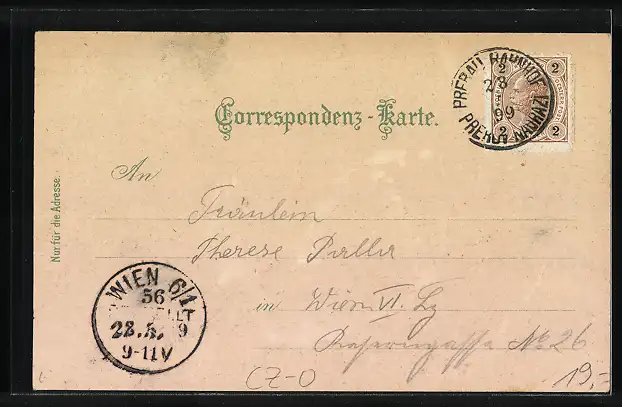 Correspondenz-Karte.
PRERAU BAHNHOF
28
99
2 2
2 2
An
Fräulein
Therese
in Wien VI.
No 26
Nur für die Adresse.
WIEN 6/1
56
28.5. 9
9-11V
CZ-0
19,-